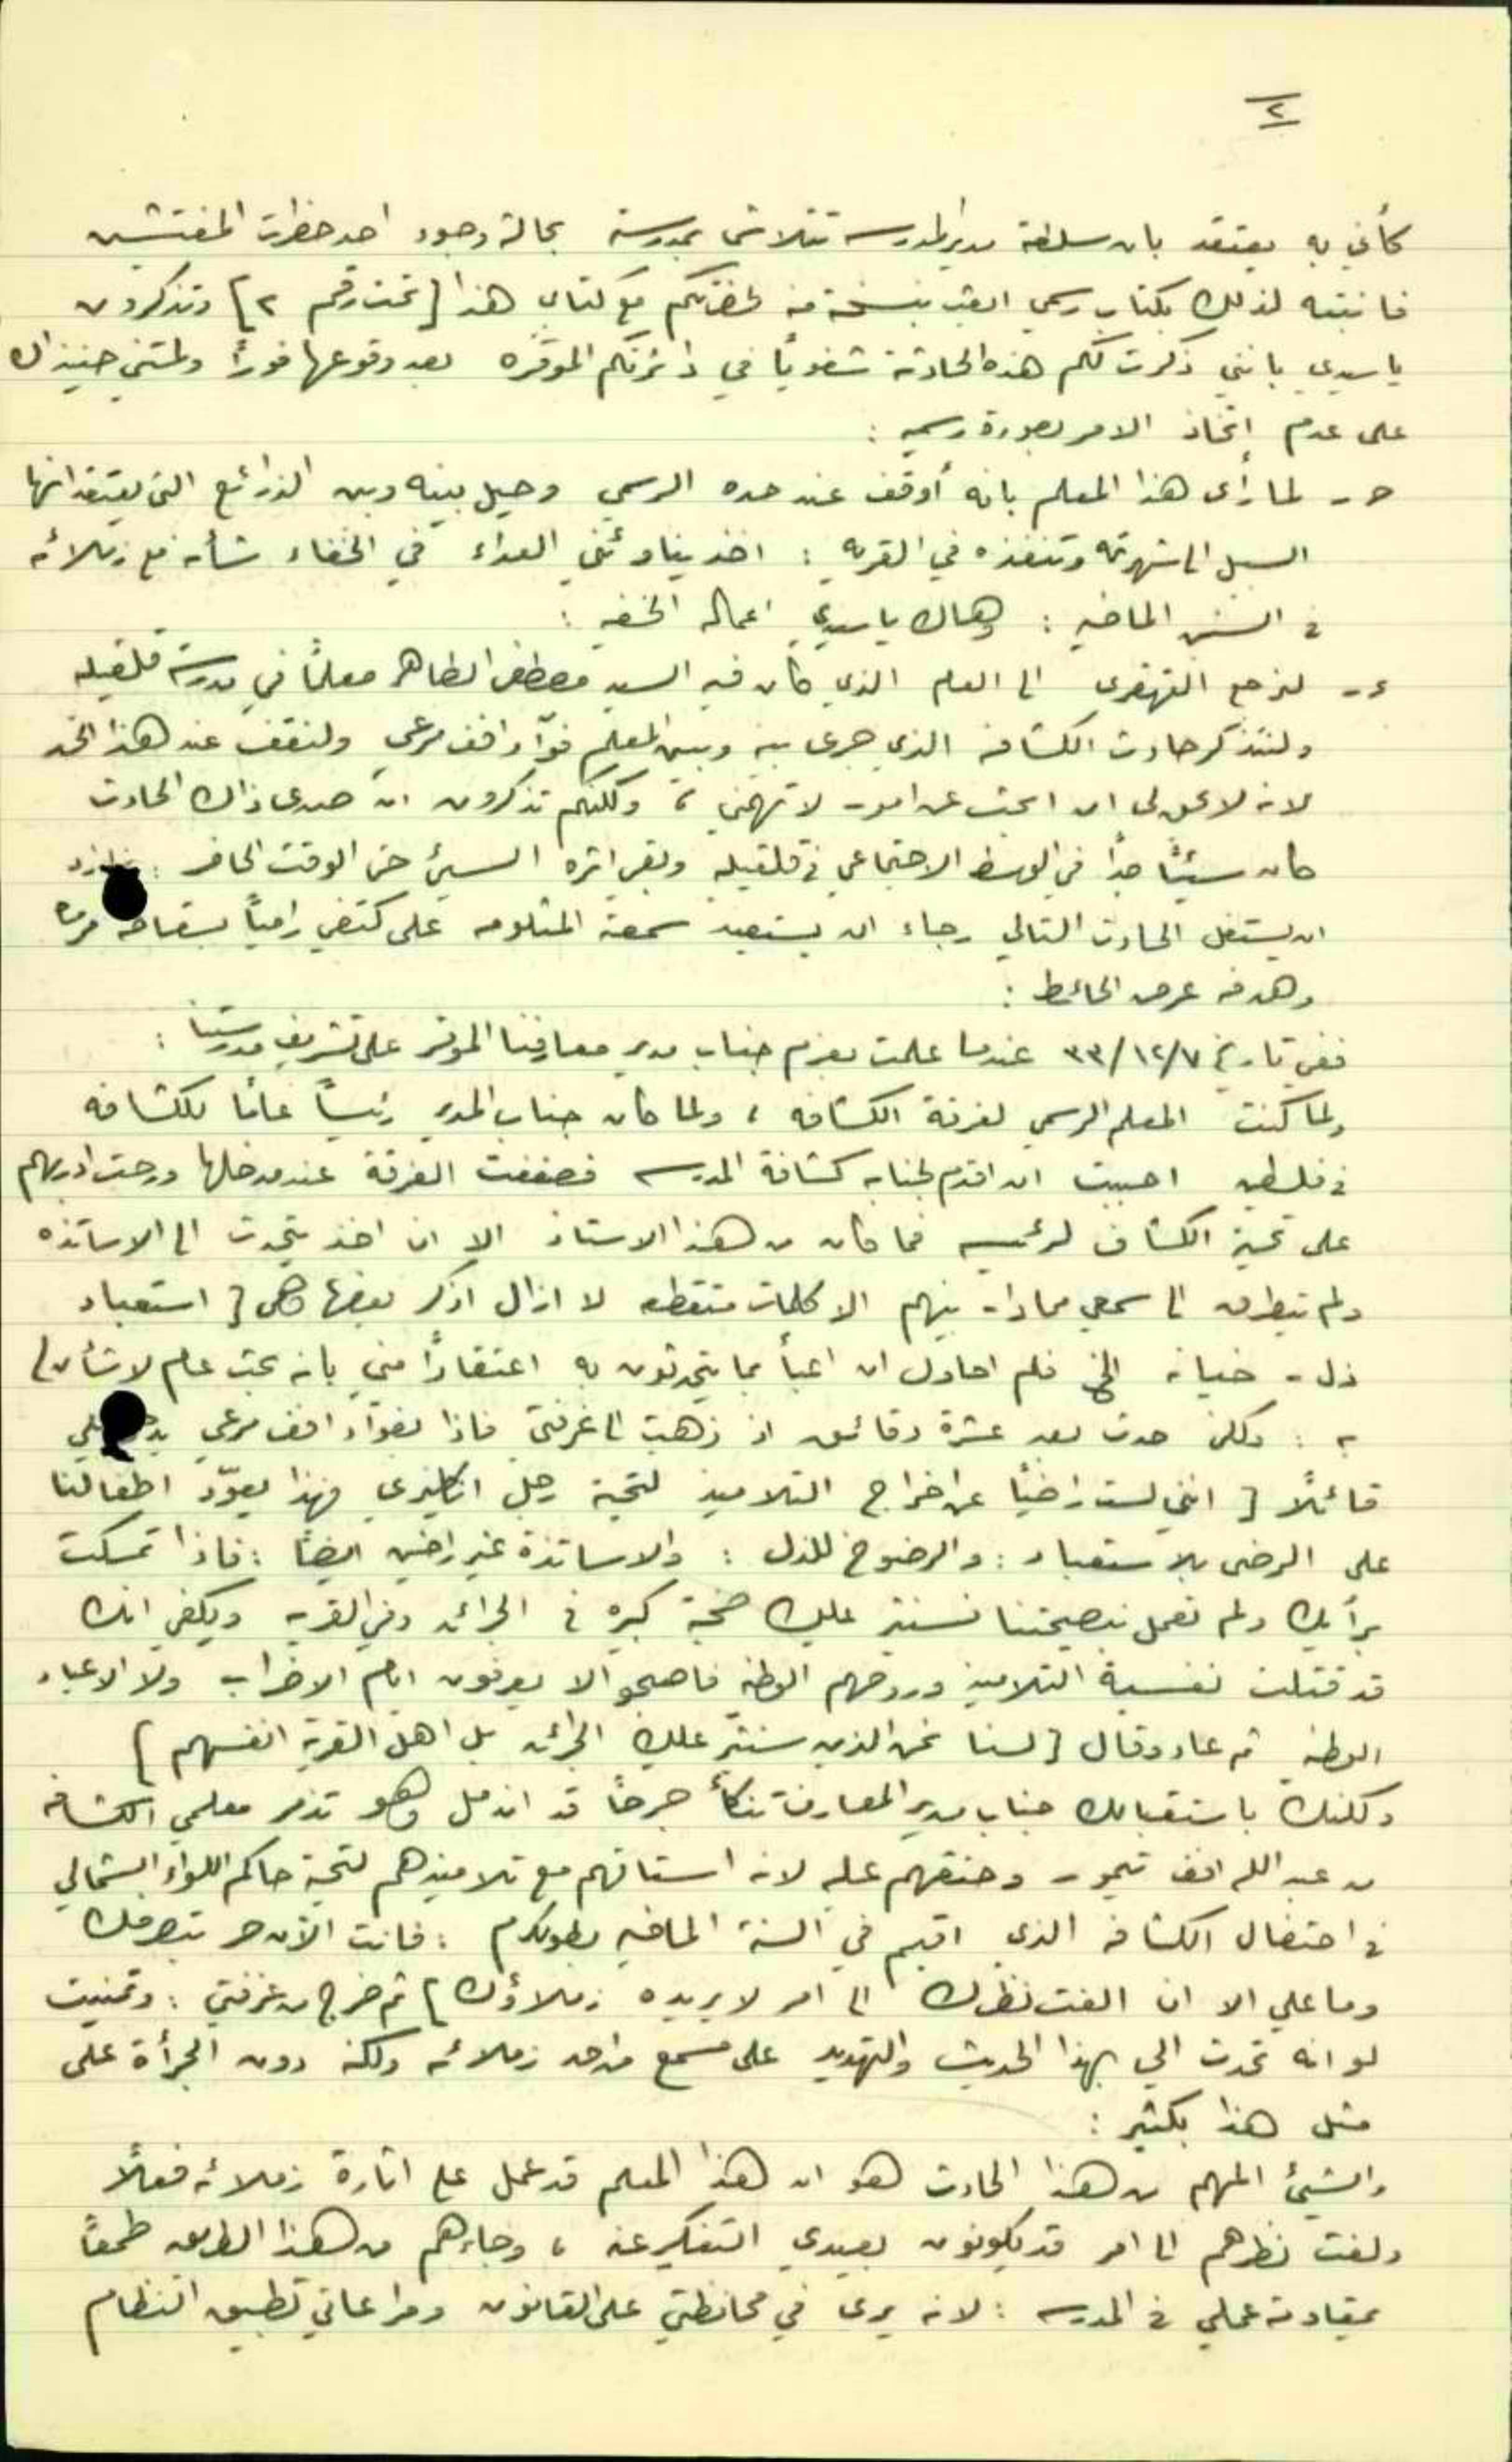 ٢
كأني به يعتقد بان سلطة مدير المدرسة تتلاشى بمدرسته بحالة وجود احد حضرات المفتشين
فانبته لذلك بكتاب رسمي ابقت بنسخة منه لحضرتكم مع كتابي هذا [تحت رقم ٢] وتذكرون
يا سيدي بانني ذكرت لكم هذه الحادثة شفوياً في دائرتكم الموقره بعد وقوعها فوراً ولمتني حينذاك
على عدم إتخاذ الامر بصورة رسمية :
حـ - لما رأى هذا المعلم بانه أوقف عند حده الرسمي وحيل بينه وبين الذرائع التي يعتقد انها
السبل الى شهرته وتنفذه في القريه : اخذ يناوئني العداء في الخفاء شأنه مع زملائه
في السنين الماضيه : وهاك يا سيدي اعماله الخفيه :
ء - لنرجع القهقرى الى العام الذي كان فيه السيد مصطفى الطاهر معلماً في مدرسة قلقيليه
ولنتذكر حادث الكشافه الذي جرى بينه وبين المعلم فوّاد افندي مرعي ولنقف عند هذا الحد
لانه لا يحق لي ان ابحث عن امور لا تهمني ، ولكنكم تذكرون ان صدى ذاك الحادث
كان سيئاً جداً في الوسط الاجتماعي في قلقيليه وبقي اثره السيئ حتى الوقت الحاضر :
ان يستغل الحادث التالي رجاء ان يستعيد سمعته المثلومه على كتفي رامياً بسقاطه
وهدفه عرض الحائط :
ففي تاريخ ٣٣/١٢/٧ عندما علمت بعزم جناب مدير معارفنا الموقر على تشريف مدرستنا :
ولما كنت المعلم الرسمي لفرقة الكشافه ، ولما كان جناب المدير رئيساً عاماً للكشافه
في فلسطين احببت ان اقدم لجنابه كشافة المدرسه فصففت الفرقة عند مدخلها ورحت ادربهم
على تحية الكشاف لرئيسه فما كان من هذا الاستاذ الا ان اخذ يتحدث الى الاساتذه
ولم يتطرق الى سمعي مما دار بينهم الا كلمات متقطعه لا ازال اذكر بعضها وهي [ استعباد
ذل - خيانه الخ فلم احاول ان اعبأ بما يتحدثون به اعتقاداً مني بانه بحث عام لا شأن لي
به : ولكن حدث بعد عشرة دقائق اذ ذهبت الى غرفتي فاذا بفوّاد افندي مرعي يدخل علي
قائلاً [ انني لست راضياً عن اخراج التلاميذ لتحية رجل انكليزي فهذا يعوّد اطفالنا
على الرضى بالاستعباد : والرضوخ للذل : والاساتذة غير راضين ايضاً : فاذا تمسكت
برأيك ولم تعمل بنصيحتنا فستثير عليك ضجة كبيره في الجرائد وفي القريه ويكفي انك
قد قتلت نفسية التلاميذ وروحهم الوطنيه فاصبحوا لا يعرفون ايام الاضراب ولا الاعياد
الوطنيه ثم عاد وقال [ لسنا نحن الذين سنثير عليك الجرائد بل اهل القرية انفسهم ]
ولكنك باستقبالك جناب مدير المعارف تنكأ جرحاً قد اندمل وهو تذمر معلمي الكشافه
من عبد الله افندي تيمور وحنقهم عليه لانه استاقهم مع تلاميذهم لتحية حاكم اللواء الشمالي
في احتفال الكشافه الذي اقيم في السنة الماضيه بطولكرم : فانت الآن حر بتصرفك
وما علي الا ان الفت نظرك الى امر لا يريده زملاؤك ] ثم خرج من غرفتي : وتمنيت
لو انه تحدث الي بهذا الحديث والتهديد على مسمع من احد زملائه ولكنه دون الجرأة على
مثل هذا بكثير :
والشيئ المهم من هذا الحادث هو ان هذا المعلم قد عمل على اثارة زملائه فعلاً
ولفت نظرهم الى امر قد يكونون بعيدي التفكير عنه ، وجاءهم من هذا الطريق طمعاً
بمقاومة عملي في المدرسه : لانه يرى في محافظتي على القانون ومراعاتي تطبيق النظام